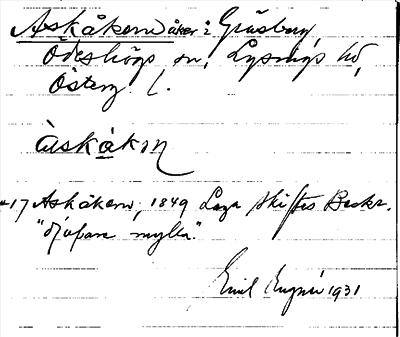 Askåkern åker i Gråsberg,
Ödeshögs sn, Lysings hd,
Österg. l.
àskåkɳ
417 Askåkern, 1849 Laga skiftes Beskr.
"djupare mylla."
Emil 1931